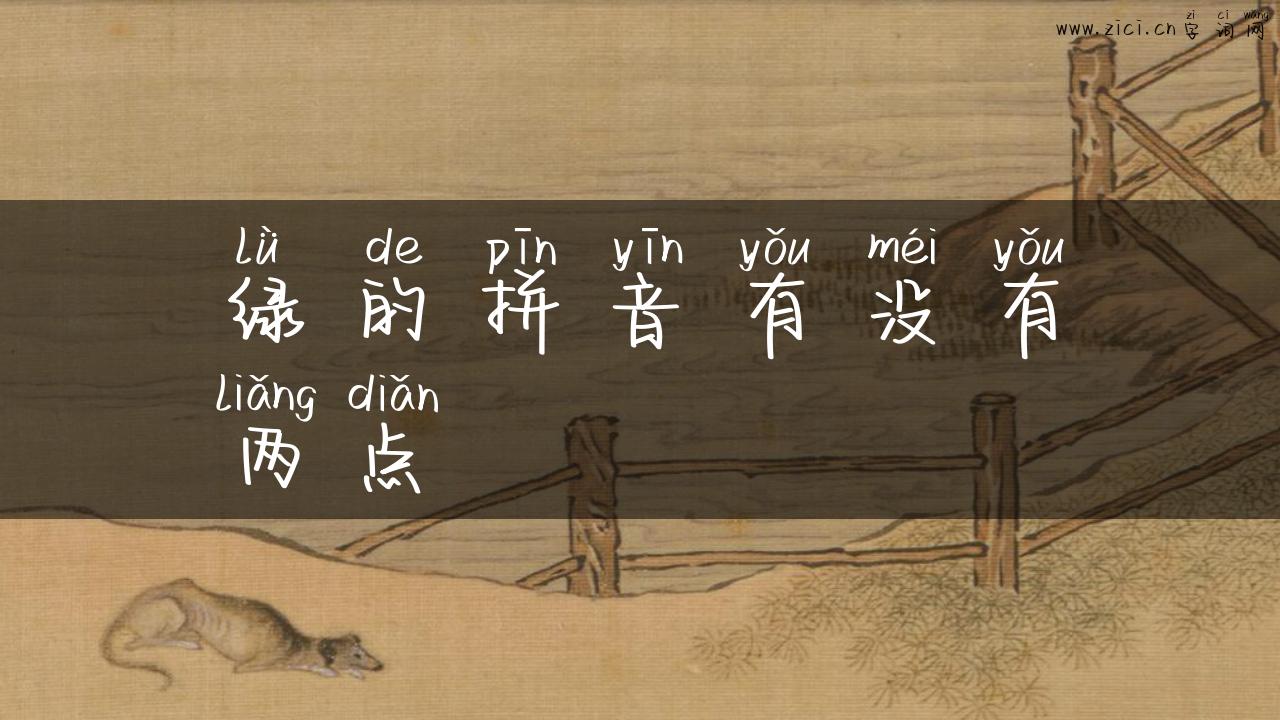 zì cí wǎng
www.zici.cn 字词网
lǜ de pīn yīn yǒu méi yǒu
绿的拼音有没有
liǎng diǎn
两点